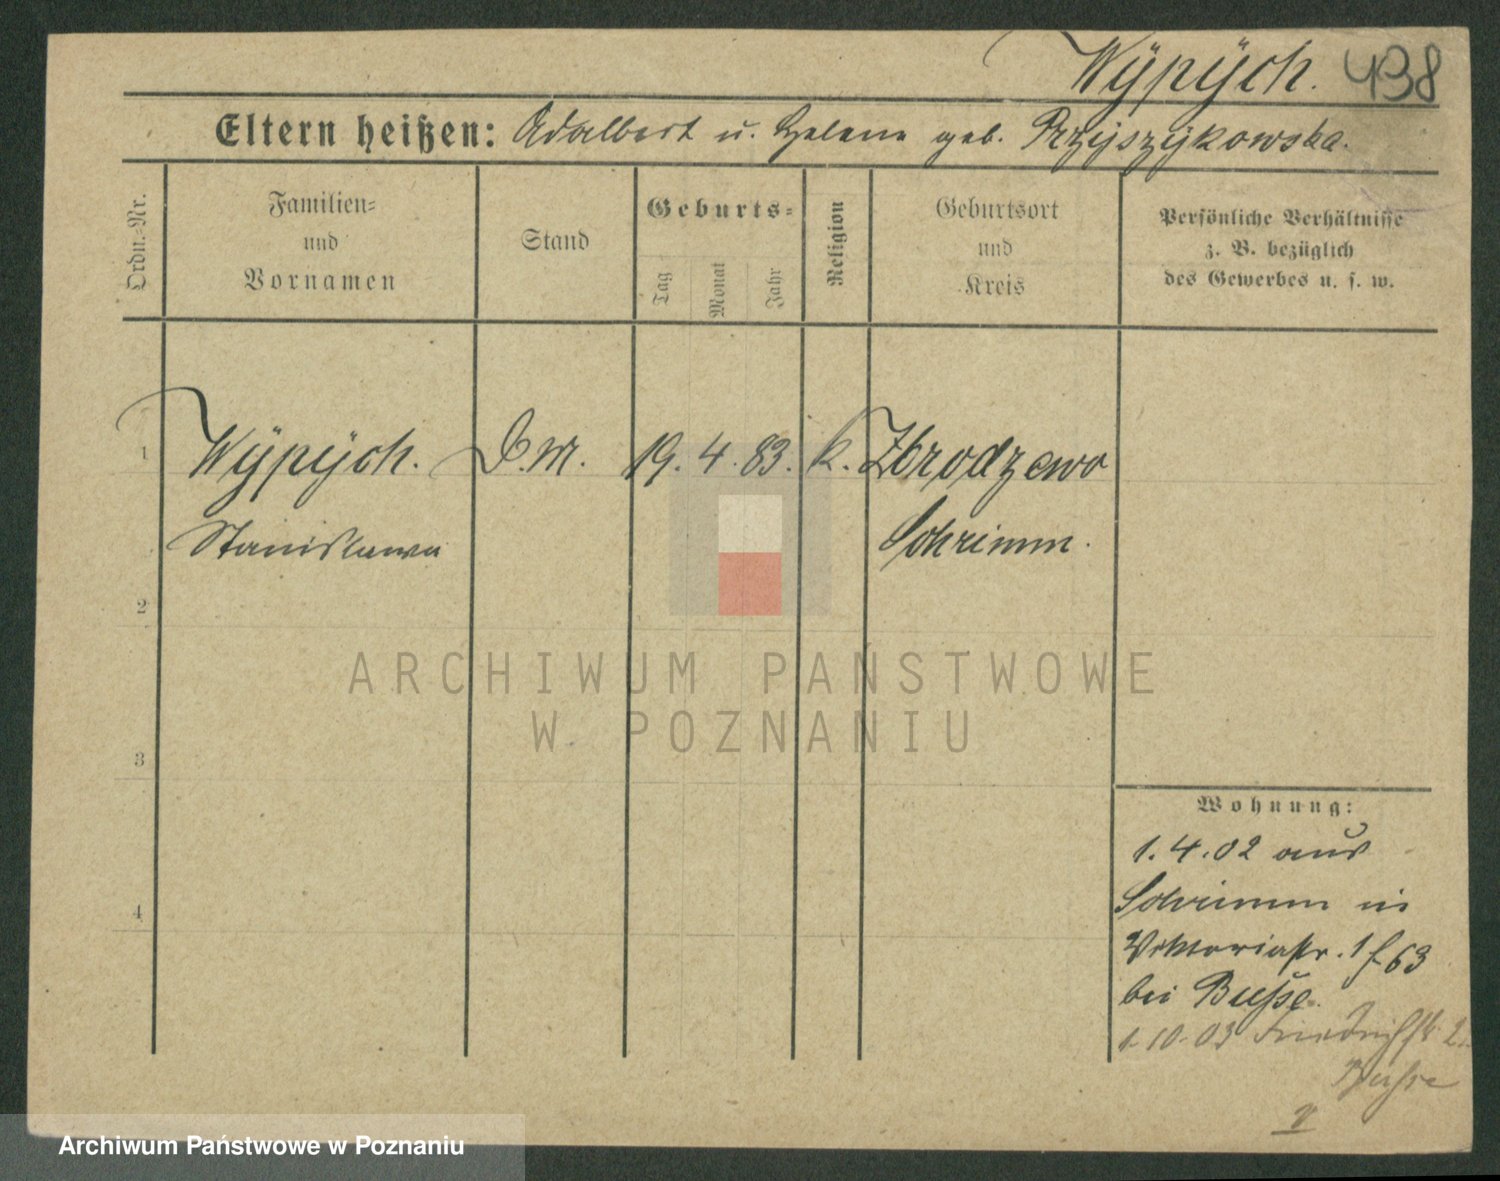 Wÿpÿch. 438
Eltern heißen: Adalbert u. Helene geb. Przÿszÿkowska.
Ordn.-Nr.
Familien-
und
Vornamen
Stand
Geburts-
Tag
Monat
Jahr
Religion
Geburtsort
und
Kreis
Persönliche Verhältnisse
z. B. bezüglich
des Gewerbes u. s. w.
1 Wÿpÿch. D.M. 19. 4. 83. k. Zbrodzewo
Stanislawa Schrimm.
2
ARCHIWUM PAŃSTWOWE
W POZNANIU
3
Wohnung:
1. 4. 02 aus
4
Schrimm in
Viktoriastr. 1 f 63
bei Busse.
1-10-03 Friedrichstr. 2
Busse
V
Archiwum Państwowe w Poznaniu